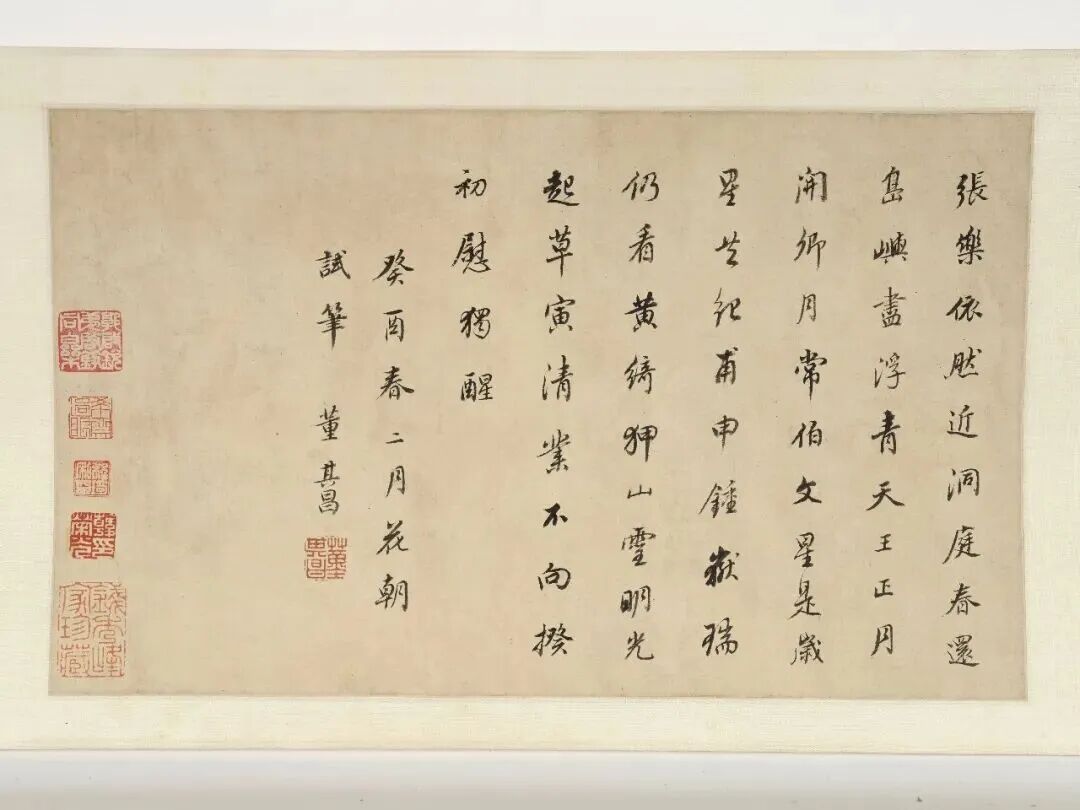 張樂依然近洞庭春還
島嶼盡浮青天王正月
開卿月常伯文星是歲
星共紀甫申鍾嶽瑞
仍看黃綺狎山靈明光
起草寅清業不向揆
初慰獨醒
癸酉春二月花朝
試筆 董其昌
董其昌